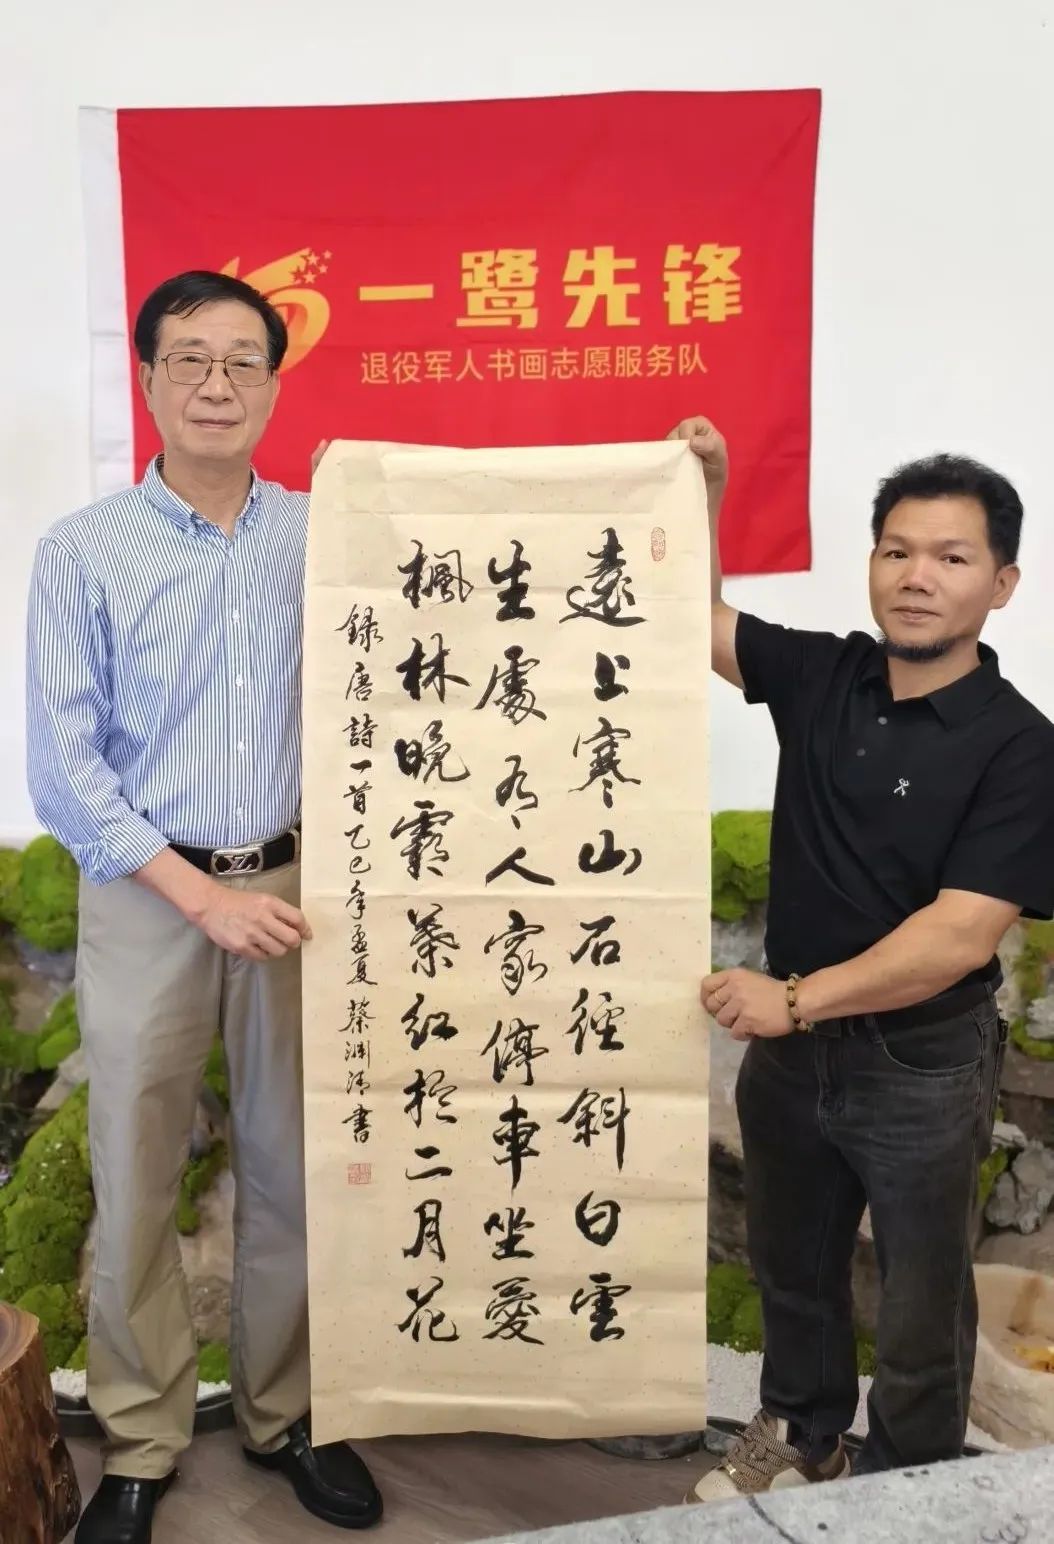 一鹭先锋
退役军人书画志愿服务队
遠上寒山石徑斜白雲
生處有人家停車坐愛
楓林晚霜葉紅於二月花
録唐詩一首乙巳年孟夏蔡淵清書